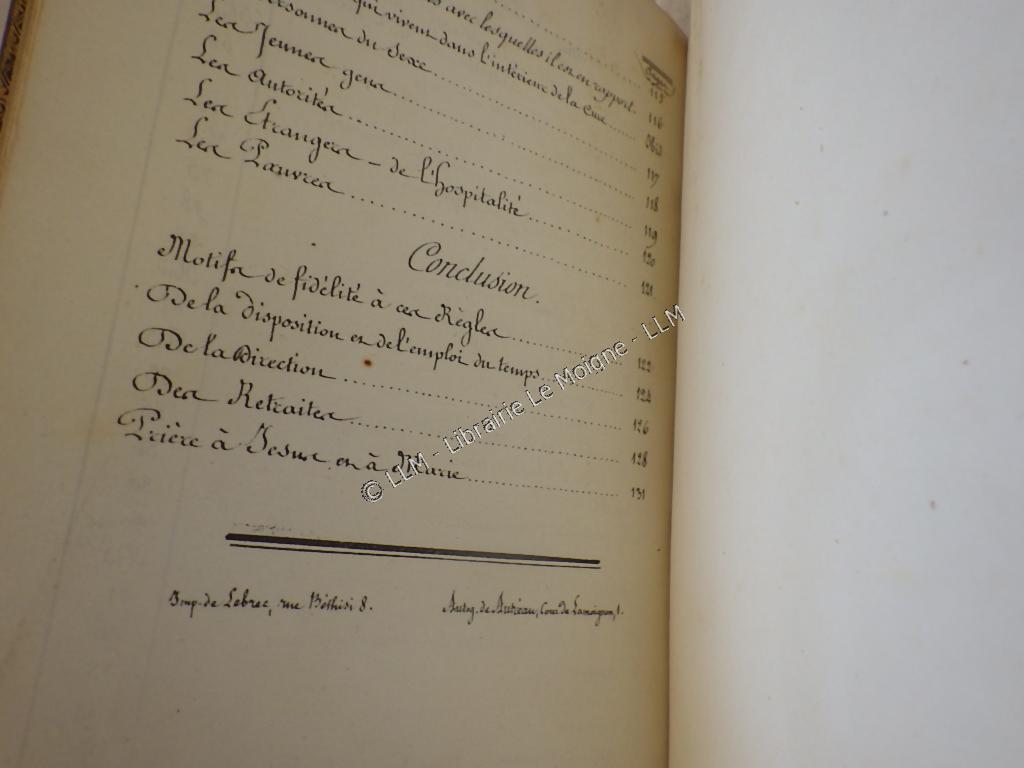 avec lesquelles il est en rapport. 115
qui vivent dans l'intérieur de la Cure 116
Personnes du Sexe Ibid
Les Jeunes gens 117
Les Autorités 118
Les Étrangers - de l'hospitalité 119
Les Pauvres 120
121
Conclusion.
Motifs de fidélité à ces Règles 122
De la disposition et de l'emploi du temps 124
De la Direction 126
Des Retraites 128
Prière à Jesus et à Marie 131
Imp. de Lebrec, rue Béthisi 8. Autog. de Autréau, Cour de Lamoignon, 1.
© LLM - Librairie Le Moigne - LLM